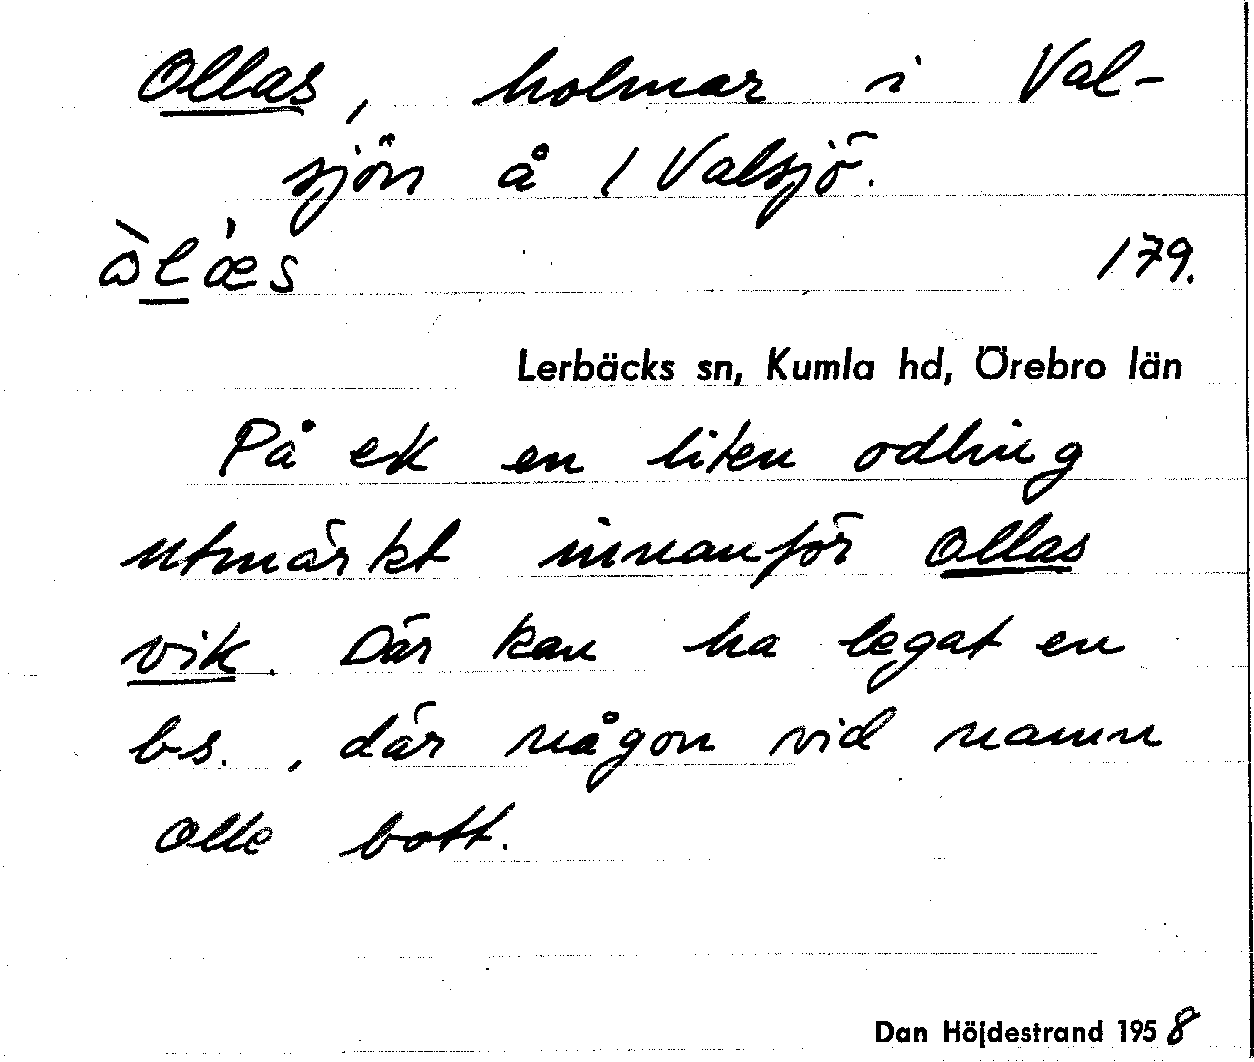 Ollas, holmar i Val-
sjön å 1 Valsjö.
179.
Lerbäcks sn, Kumla hd, Örebro län
På ek en liten odling
utmärkt innanför Ollas
vik. Där kan ha legat en
bs., där någon vid namn
Olle bott.
Dan Höjdestrand 1958